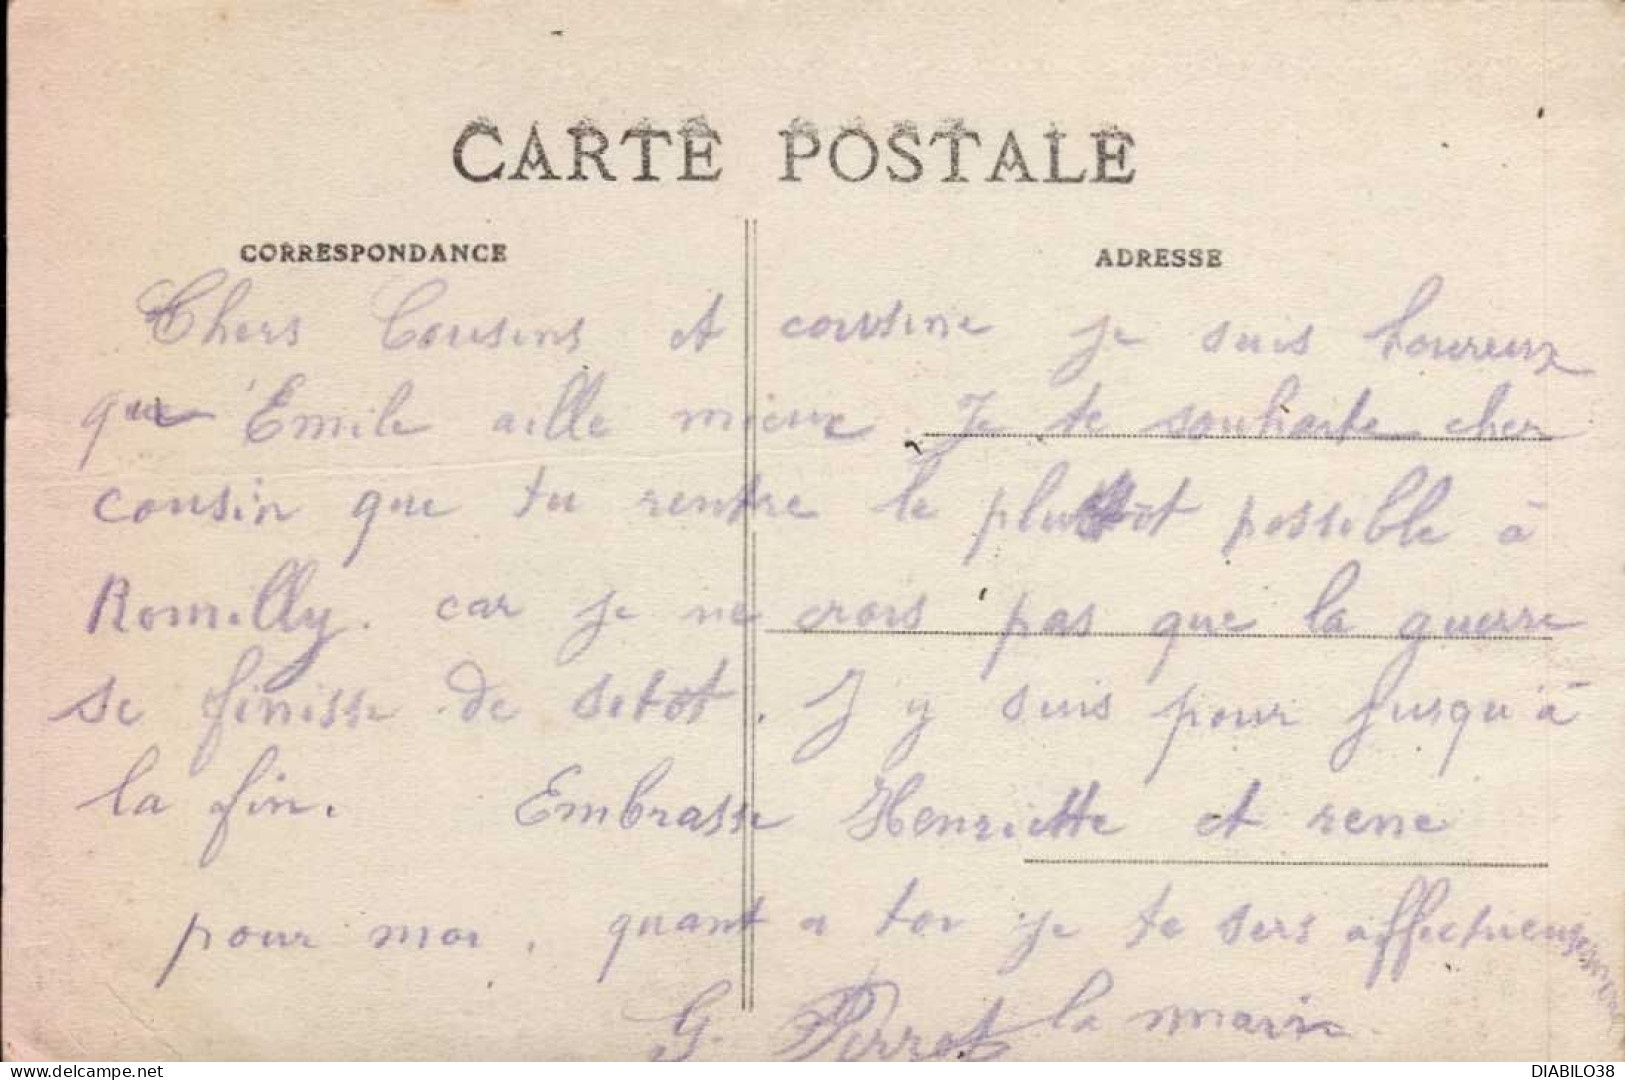 CARTE POSTALE
CORRESPONDANCE
ADRESSE
Chers Cousins et cousine je suis houreux
que Emile aille mieux. Je te souhaite cher
cousin que tu rentre le plutôt possible à
Romilly. car je ne crois pas que la guerre
se finisse de setôt. J'y suis pour jusqu'à
la fin. Embrasse Henriette et rene
pour moi. quant a toi je te sers affectueusement
la main
G. Perret
delcampe.net
DIABILO38